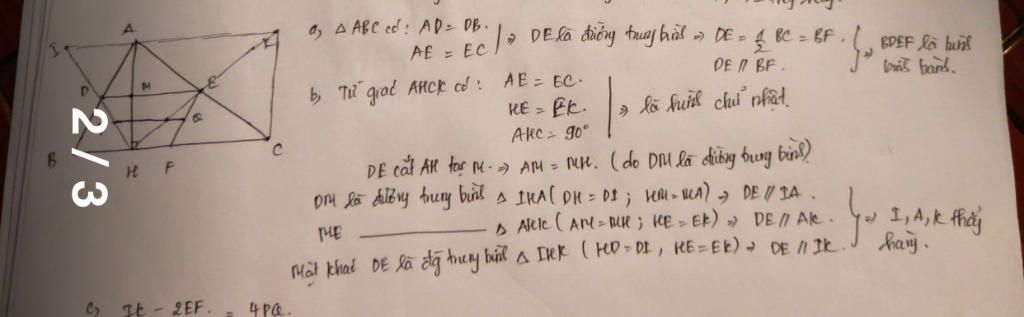 I A K
D M E
Q
B H F C
2/3
a, Δ ABC có: AD = DB.
AE = EC
⇒ DE là đường trung bình ⇒ DE = 1/2 BC = BF.
DE // BF.
⇒ BDEF là hình bình hành.
b, Tứ giác AHCK có: AE = EC.
HE = EK.
AHC = 90°
⇒ là hình chữ nhật.
DE cắt AH tại M. ⇒ AM = MH. (do DM là đường trung bình)
DM là đường trung bình Δ IHA (DH = DI; HM = MA) ⇒ DE // IA.
ME ———— Δ AHK (AM = MH; HE = EK) ⇒ DE // AK.
Mặt khác DE là đg trung bình Δ IHK (HD = DI, HE = EK) ⇒ DE // IK.
⇒ I, A, K thẳng hàng.
c, IK - 2EF = 4PQ.